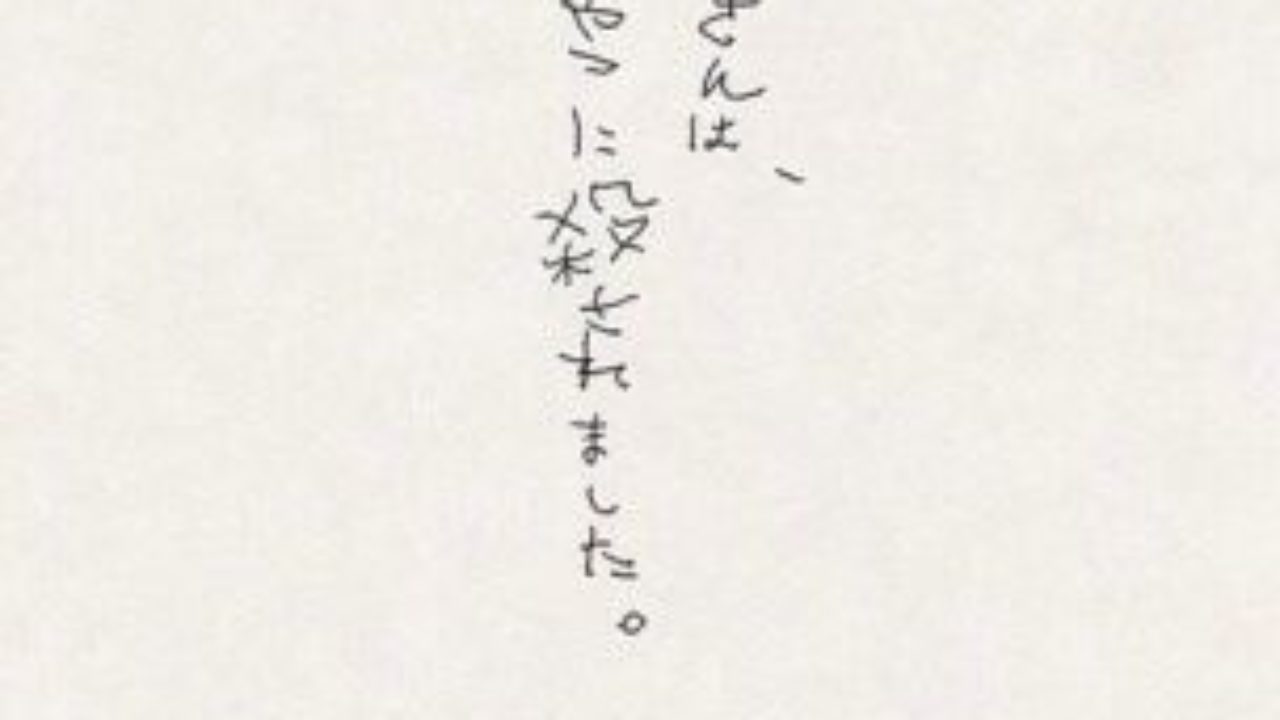 さんは、
やつに殺されました。